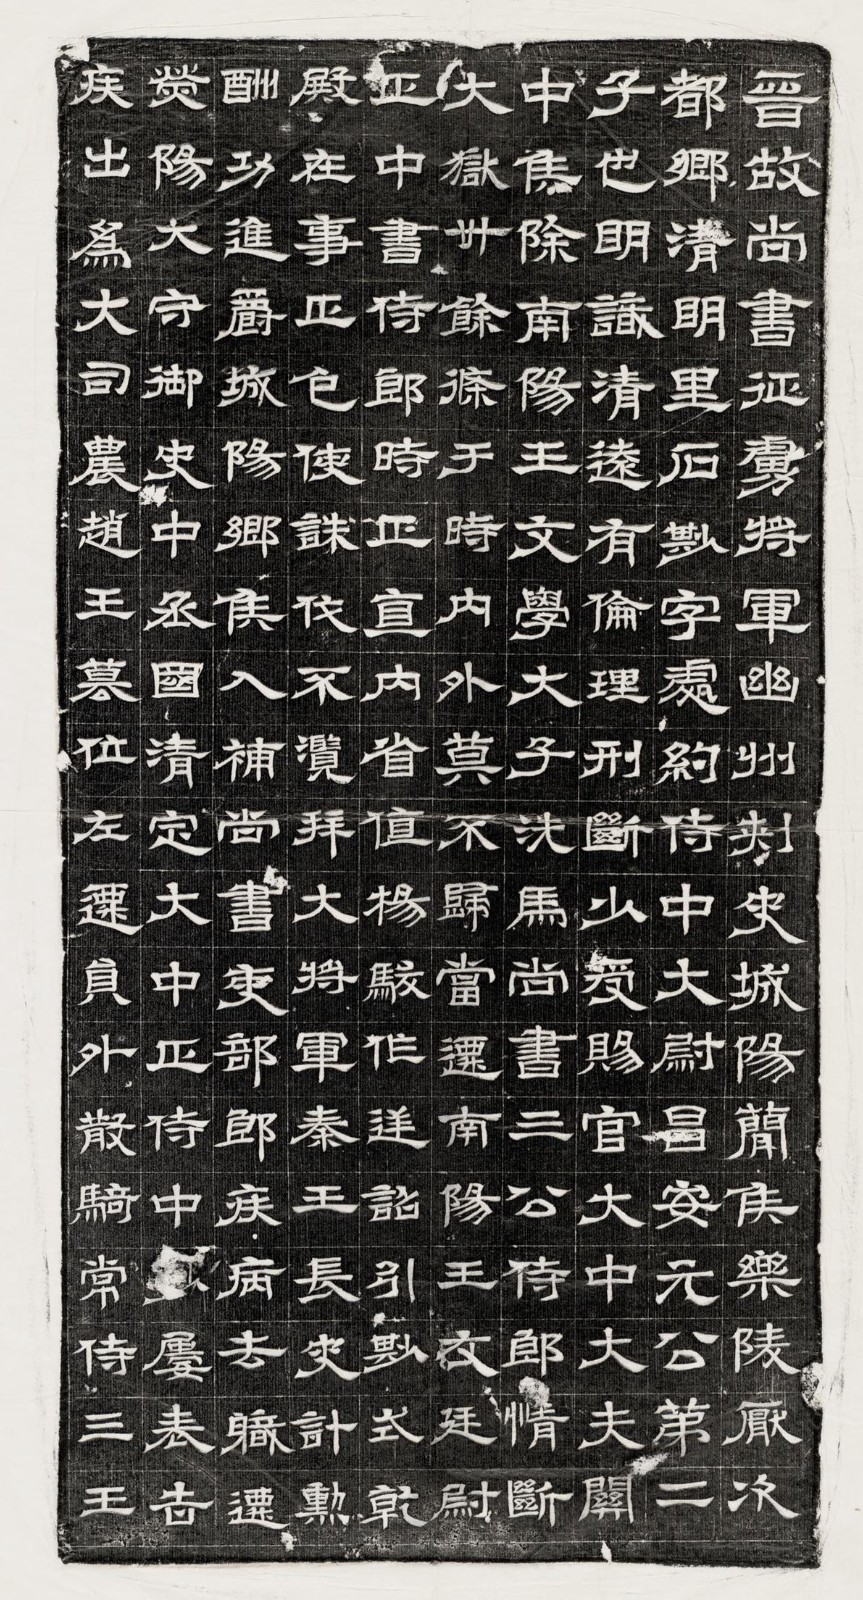 晉故尚書征虜將軍幽州刺史城陽簡侯樂陵厭次
都鄉清明里石尠字處約侍中大尉昌安元公第二
子也明識清遠有倫理刑斷少受賜官大中大夫關
中侯除南陽王文學大子洗馬尚書三公侍郎情斷
大獄卅餘條于時內外莫不歸當遷南陽王文廷尉
正中書侍郎時正直內省值楊駿作逆詔引尠式乾
殿在事正色使誅伐不濫拜大將軍秦王長史計勳
酬功進爵城陽鄉侯入補尚書吏部郎疾病去職遷
滎陽大守御史中丞國清定大中正侍中尠屢表告
疾出爲大司農趙王篡位左遷員外散騎常侍三王